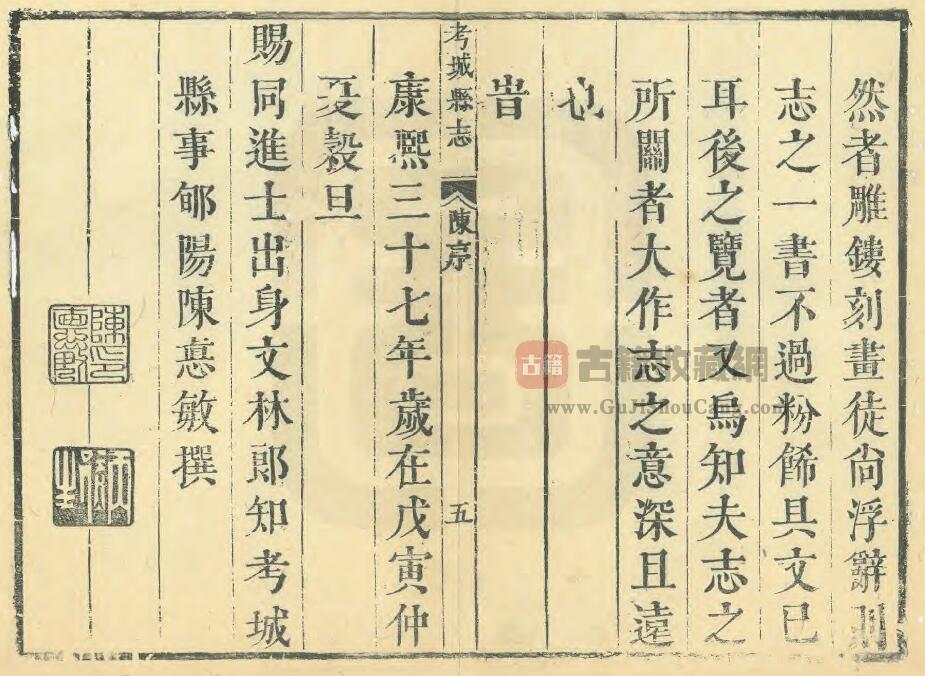 然者雕鏤刻畫徒尙浮辭則
志之一書不過粉餙具文已
耳後之覽者又烏知夫志之
所關者大作志之意深且遠
也
旹
考城縣志 陳序 五
康熙三十七年歲在戊寅仲
夏穀旦
賜同進士出身文林郎知考城
縣事郇陽陳悳敏撰
古籍 古籍收藏網
www.GuJiShouCang.com